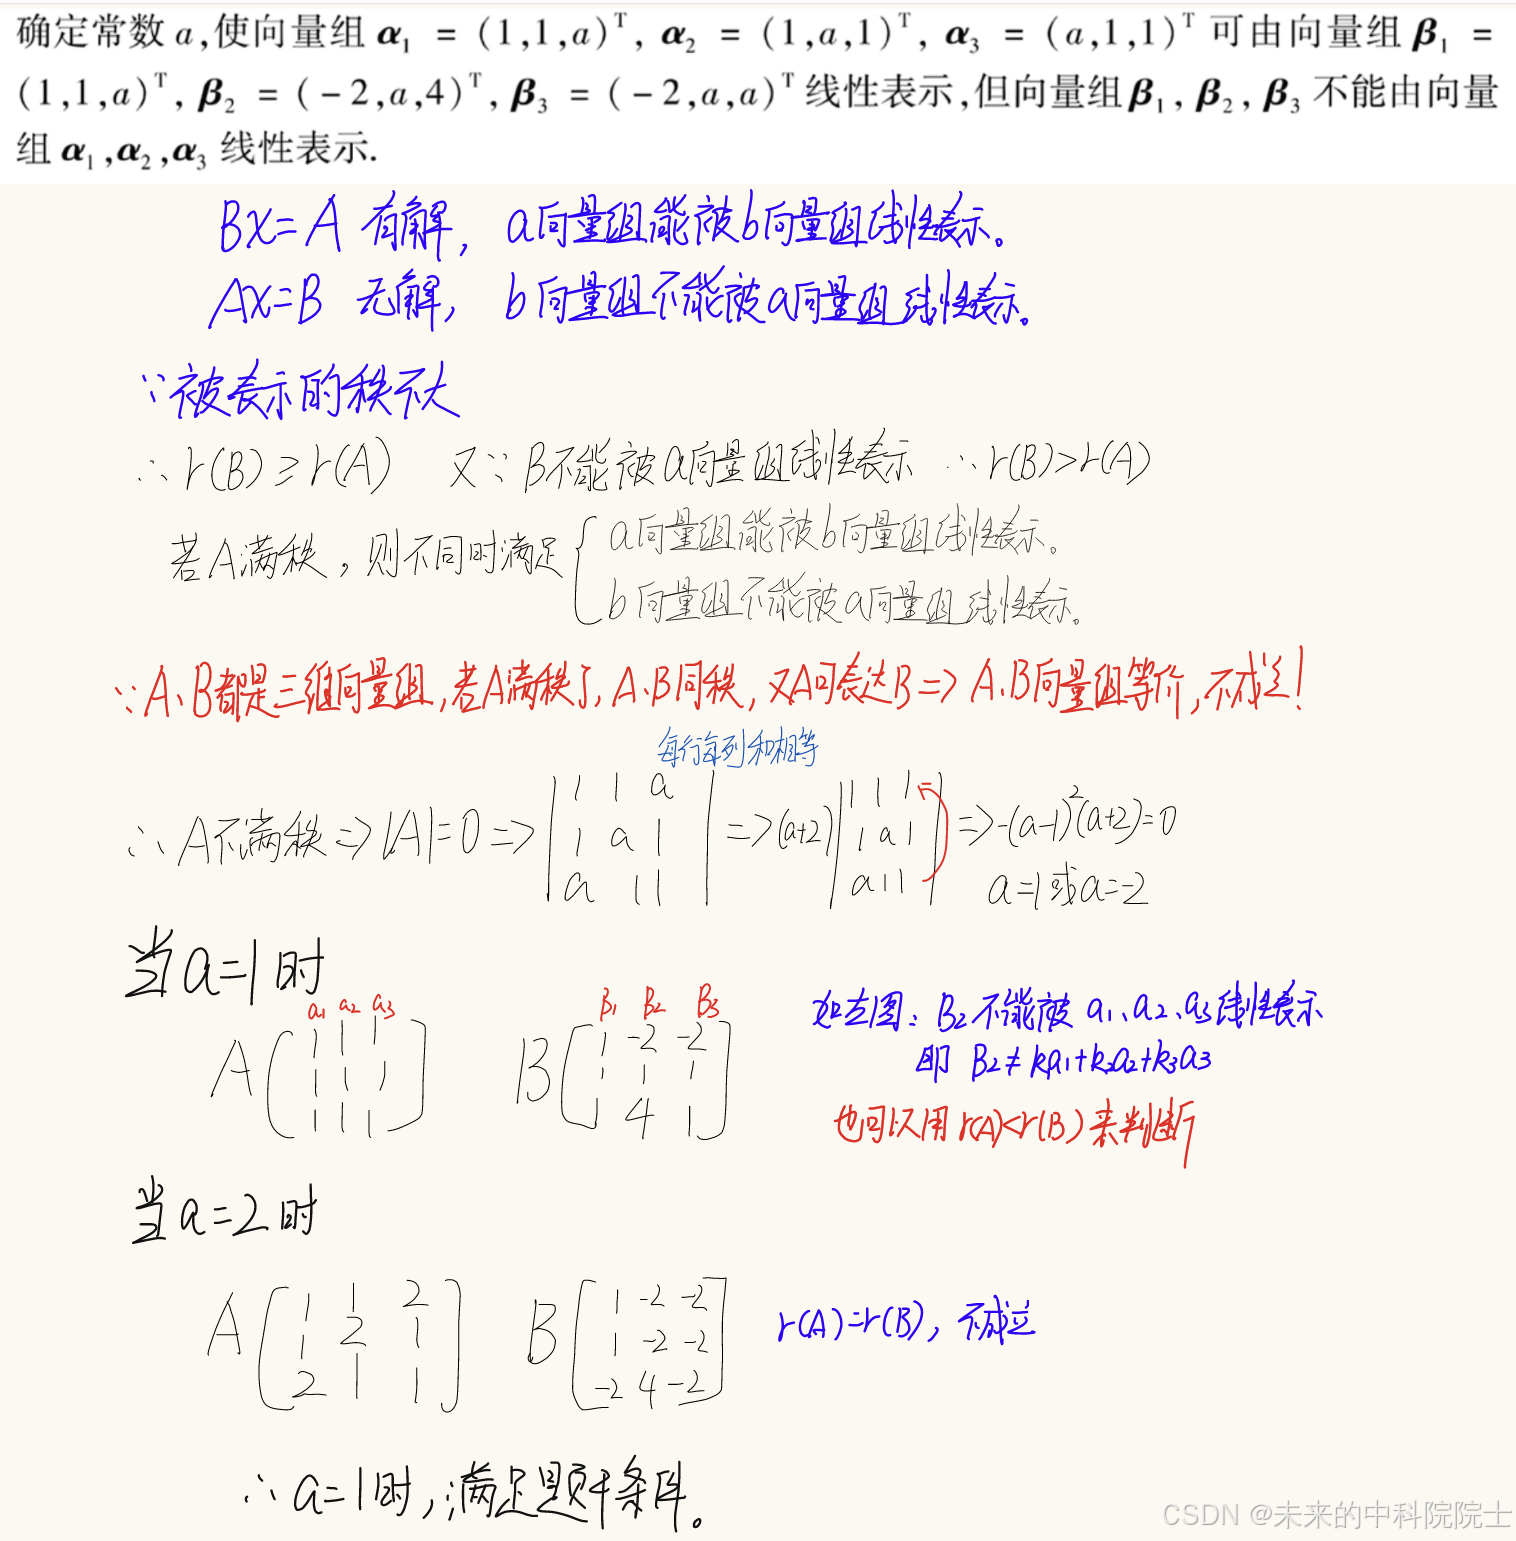 确定常数 a,使向量组 α₁ = (1,1,a)ᵀ, α₂ = (1,a,1)ᵀ, α₃ = (a,1,1)ᵀ 可由向量组 β₁ =
(1,1,a)ᵀ, β₂ = (-2,a,4)ᵀ, β₃ = (-2,a,a)ᵀ 线性表示,但向量组 β₁, β₂, β₃ 不能由向量
组 α₁,α₂,α₃ 线性表示.
BX=A 有解, a向量组能被b向量组线性表示。
AX=B 无解, b向量组不能被a向量组线性表示。
∵被表示的秩不大
∴r(B)≥r(A) 又∵B不能被a向量组线性表示 ∴r(B)>r(A)
若A满秩,则不同时满足{ a向量组能被b向量组线性表示。
b向量组不能被a向量组线性表示。
∵A、B都是三维向量组,若A满秩了,A、B同秩,又A可表达B=>A、B向量组等价,不成立!
每行每列和相等
∴A不满秩=>|A|=0=>| 1 1 a | =>(a+2)| 1 1 1 | =>-(a-1)²(a+2)=0
| 1 a 1 | | 1 a 1 |
| a 1 1 | | a 1 1 | a=1或a=-2
当a=1时
a₁ a₂ a₃ B₁ B₂ B₃
A [ 1 1 1 ] B [ 1 -2 -2 ]
[ 1 1 1 ] [ 1 1 1 ]
[ 1 1 1 ] [ 1 4 1 ]
如左图: B₂不能被 a₁、a₂、a₃线性表示
即 B₂≠k₁a₁+k₂a₂+k₃a₃
也可以用r(A)<r(B)来判断
当a=2时
A [ 1 1 2 ] B [ 1 -2 -2 ]
[ 1 2 1 ] [ 1 -2 -2 ]
[ 2 1 1 ] [ -2 4 -2 ]
r(A)=r(B), 不成立
∴a=1时,满足题干条件。
CSDN @未来的中科院院士